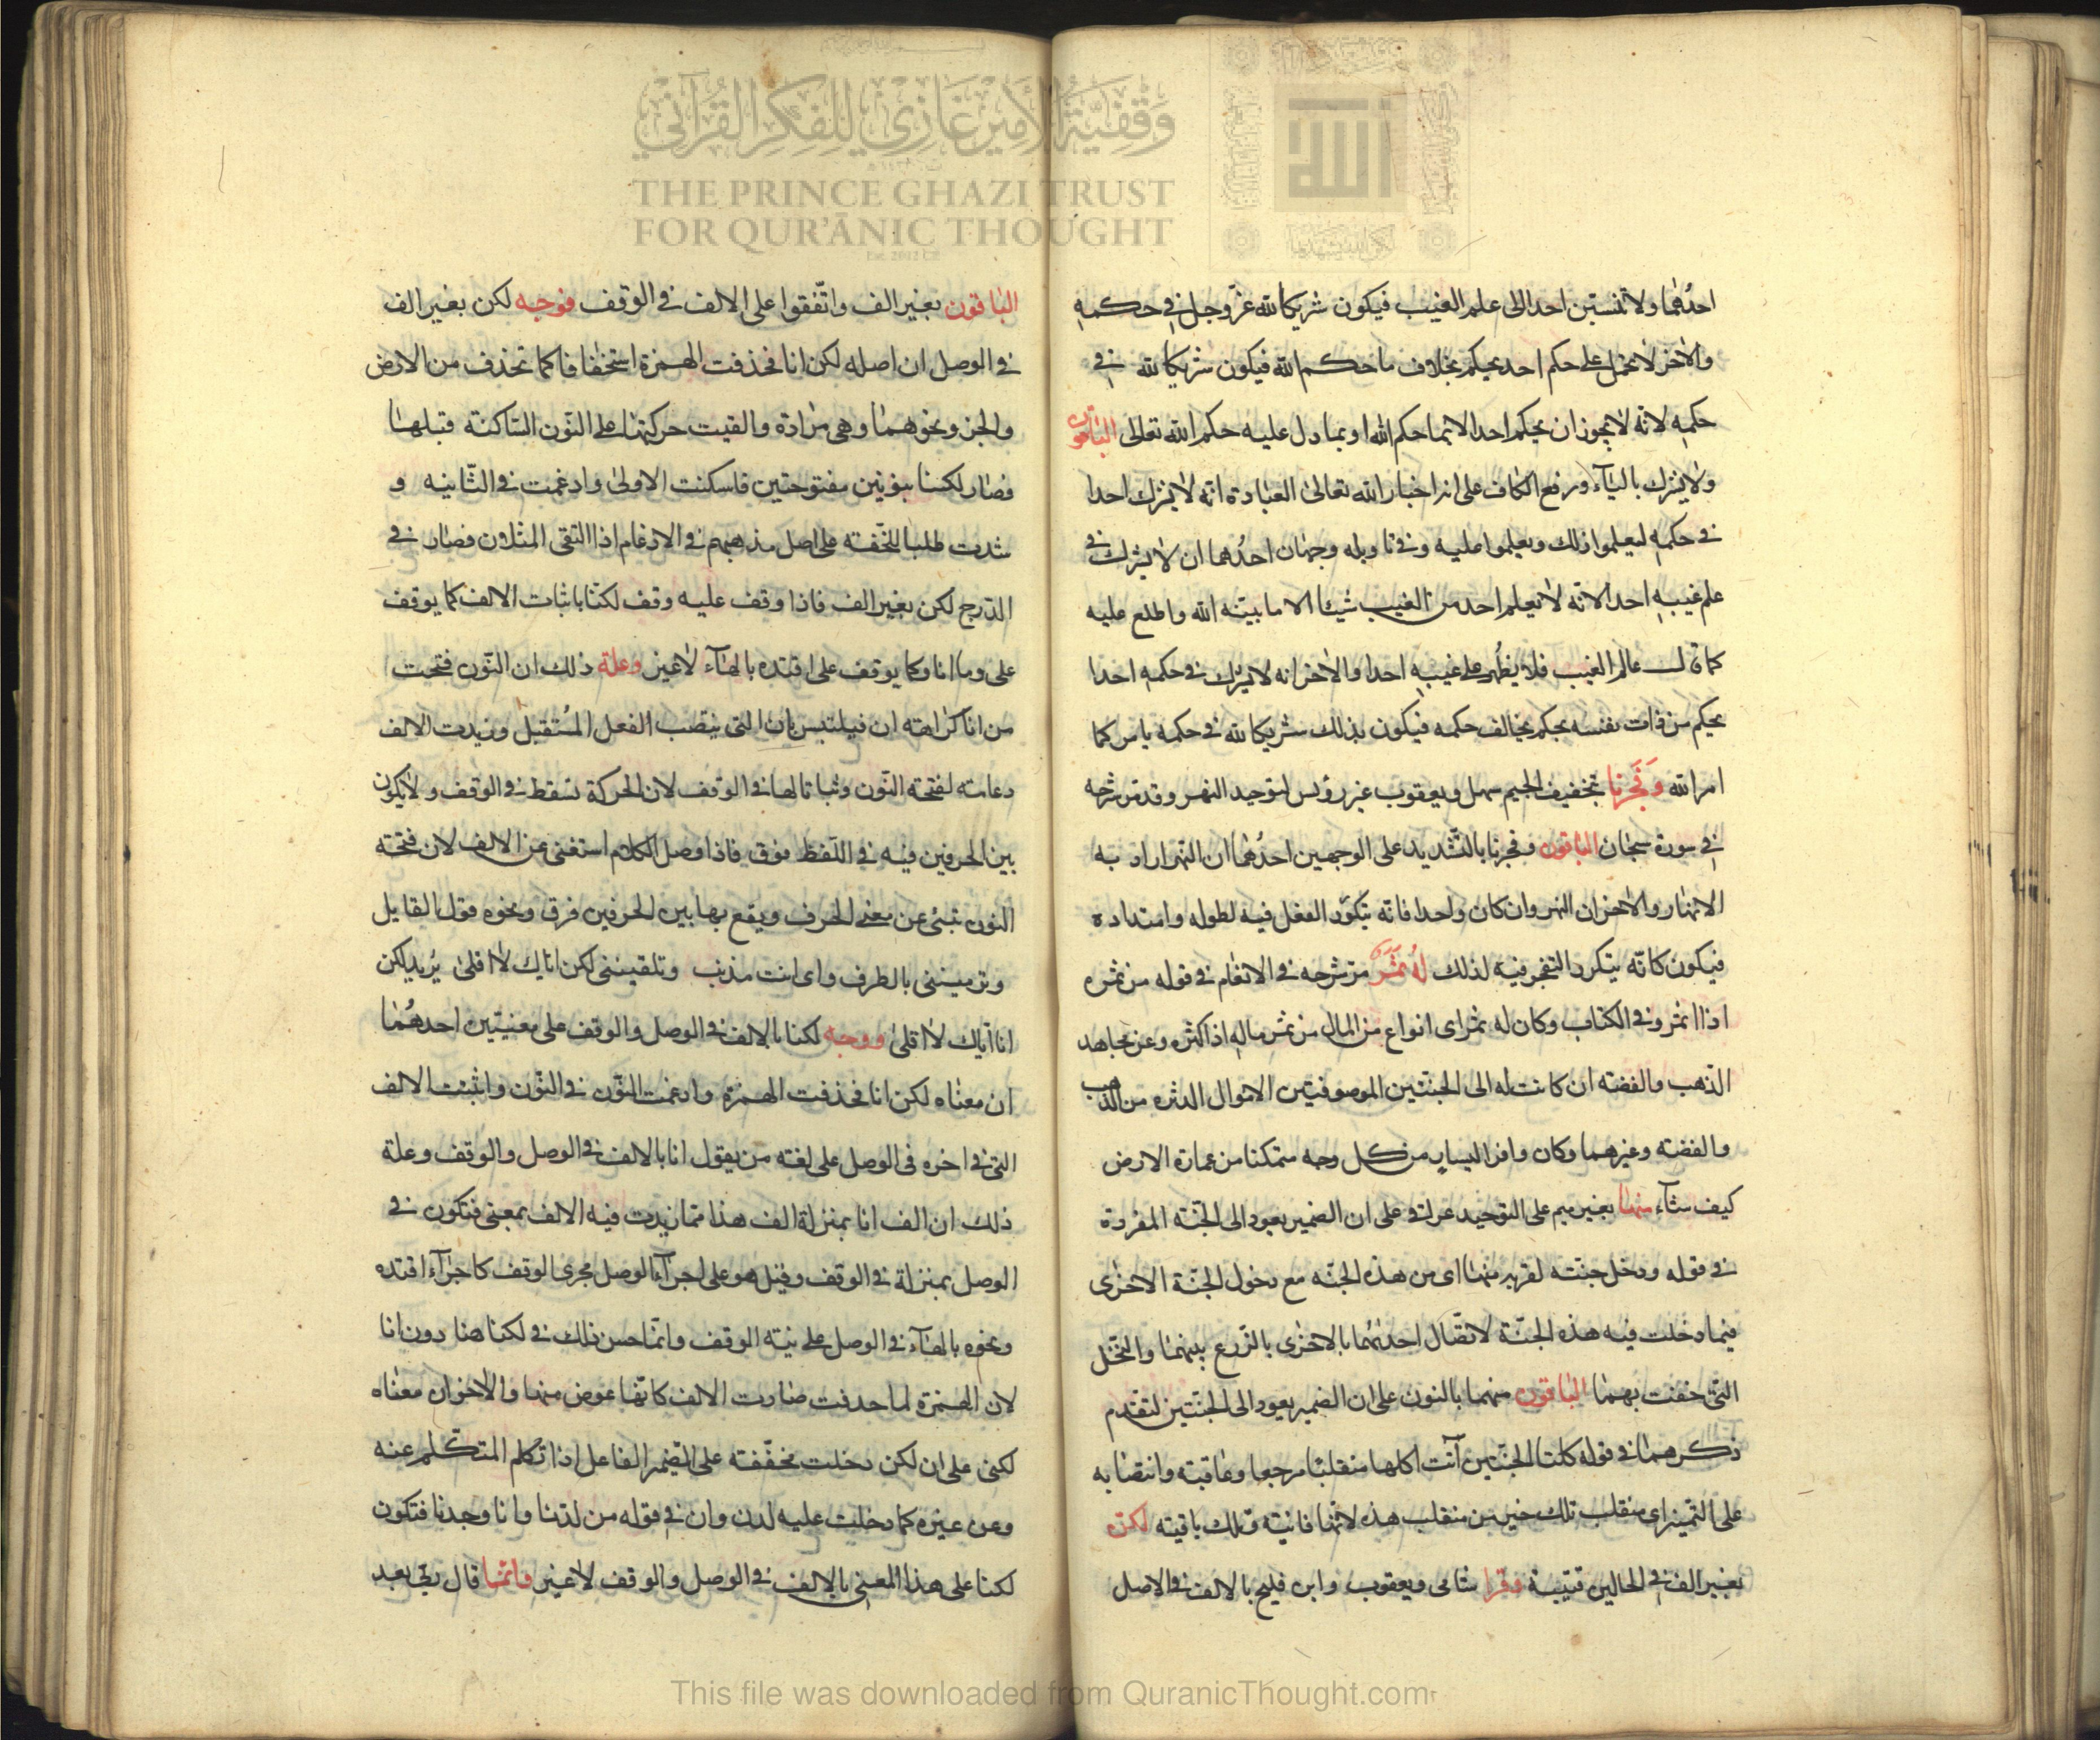 وقفية الأمير غازي للفكر القرآني
THE PRINCE GHAZI TRUST
FOR QUR'ĀNIC THOUGHT
احدُهُما ولا تنسبن احدا الى علم الغيب فيكون شريكا لله عزّ وجل في حكمهِ
والاخر لا تحمل على حكم احد يحكم بخلاف ما حكم الله فيكون شريكا لله في
حكمِه لانه لا يجوز ان يحكم احد الا بما حكم الله او بما دل عليه حكم الله تعالى الباقون
ولا يشرك باليآء ورفع الكاف على انه اخبار الله تعالى العبادة انه لا يشرك احدا
في حكمِه ليعلموا ذلك ويعلموا عليه وفي تاويله وجهان احدُهما ان لا يشرك في
علم غيبهِ احدا لانه لا يعلم احد من الغيب شيئا الا ما بيّنه الله واطلع عليه
كما قال عالم الغيب فلا يظهر على غيبهِ احدا والاخر انه لا يشرك في حكمه احدا
يحكم من ذات نفسه بحكم يخالف حكمه فيكون بذلك شريكا لله في حكمه يامر كما
امر الله وَفَجَرنا بتخفيف الجيم سهل ويعقوب غير رؤيس لتوحيد النهر وقد مر شرحه
في سورة سبحان الباقون وفجرنا بالتّشديد على الوجهين احدُهُما ان النهر اراد به
الانهار والاخر ان النهر وان كان واحدا فانه يتكرّر الفعل فيه لطوله وامتداده
فيكون كانّه يتكرر التفجر فيه لذلك لهُ ثَمَر مر شرحه في الانعام في قوله من ثمره
اذا اثمر وفي الكتاب وكان له ثمر اى انواع من المال من ثمر ماله اذا كثره وعن مجاهد
الذّهب والفضّة ان كانت له الى الجنّتين الموصوفتين الاموال الدثره من الذهب
والفضة وغيرهما وكان وافر اليسار من كل وجه متمكنا من عمارة الارض
كيف شآء منها بغير ميم على التوحيد عراقي على ان الضمير يعود الى الجنّة المفردة
في قوله ودخل جنّته لقربه منها اى من هذه الجنّه مع دخول الجنّة الاخرى
فيما دخلت فيه هذه الجنّة لاتصّال احدٰيهُما بالاخرى بالزّرع بينهما والنّخل
التى حففت بهما الباقون منهما بالنون على ان الضمير يعود الى الجنّتين لتقدم
ذكرهما في قوله كلتا الجنّتين آتت اكلها منقلبًا مرجعا وعاقبته وانتصابه
على التّميز اى منقلب تلك خير من منقلب هذه لانّها فانية وتلك باقية لكنّ
بغير الف في الحالين قتيبة وقرا شامى ويعقوب وابن فليح بالالف في الاصل
البٰاقون بغير الف واتّفقوا على الالف في الوقف فوجه لكن بغير الف
في الوصل ان اصله لكن انا فحذفت الهمزة استخفافا كما تحذف من الارض
والجز ونحوهما وهى مرٰادة والقيت حركتها على النّون السّاكنة قبلها
فصٰار لكننا بنونين مفتوحتين فاسكنت الاولىٰ وادغمت في الثّانيه و
شدت طلبا للخّفة على اصل مذهبهم في الادغام اذا التقى المثلان فصٰار في
الدّرج لكن بغير الف فاذا وقف عليه وقف لكنّا باثبات الالف كما يوقف
على وما انا وكما يوقف على اقتده بالهٰآء لٰاغير وعلة ذلك ان النّون فتحت
من انا كراهة ان فيلتبس بان التى ينصب الفعل المُستقبل وزيدت الالف
دعامة لفتحة النّون وثباتا لها في الوقف لان الحركة تسقط في الوقف ولا يكون
بين الحرفين فيه في اللّفظ فرق فاذا وصل الكلام استغنى عن الالف لان فتحة
النون تبنى عن معنى الحرف ويقع بها بين الحرفين فرق ونحوه قول القايل
وترميننى بالطرف واى انت مذنب وتلقيننى لكن اياك لا اقلىٰ يُريد لكن
انا اياك لا اقلىٰ ووجه لكنا بالالف في الوصل والوقف على معنيين احدهُمٰا
ان معنٰاه لكن انا فحذفت الهمزة وادغمت النّون في النّون واثبتت الالف
التى في اخره فى الوصل على لغة من يقول انا بالالف في الوصل والوقف وعلة
ذلك ان الف انا بمنزلة الف هذا ممّا زيدت فيه الالف بمعنى فتكون في
الوصل بمنزلة في الوقف وقيل هو على اجرآء الوصل مجرى الوقف كاجرٰآء اقتده
ونحوه بالهٰآء في الوصل على نيّة الوقف وانّما حسن ذلك في لكنا هنا دون انا
لان الهمزة لما حذفت صٰارت الالف كانّها عوض منها والاخر ان معنٰاه
لكنى على ان لكن دخلت مخفّفة على الضمير الفاعل اذا تكلم المتكّلم عنه
وعن غيره كما دخلت عليه لدن وان في قوله من لدنا وانا وجدنا فتكون
لكنا على هذا المعنى بالالف في الوصل والوقف لا غير وانّما قال ربّى بعد
This file was downloaded from QuranicThought.com